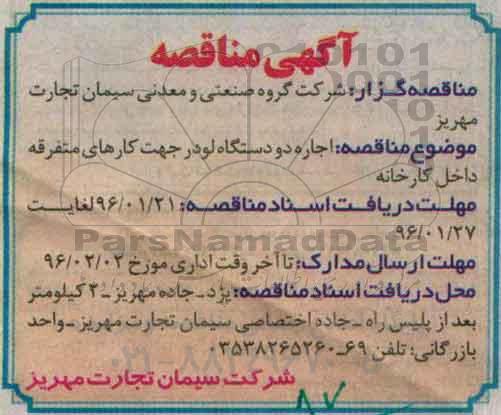 آگهی مناقصه
مناقصه‌گزار: شرکت گروه صنعتی و معدنی سیمان تجارت
مهریز
موضوع مناقصه: اجاره دو دستگاه لودر جهت کارهای متفرقه
داخل کارخانه
مهلت دریافت اسناد مناقصه: ۹۶/۰۱/۲۱ لغایت
۹۶/۰۱/۲۷
مهلت ارسال مدارک: تا آخر وقت اداری مورخ ۹۶/۰۲/۰۲
محل دریافت اسناد مناقصه: یزد ـ جاده مهریز ـ ۲ کیلومتر
بعد از پلیس راه ـ جاده اختصاصی سیمان تجارت مهریز ـ واحد
بازرگانی: تلفن ۶۹ـ۰۳۵۳۸۲۶۵۲۶۰
شرکت سیمان تجارت مهریز
ParsNamadData
۸۷